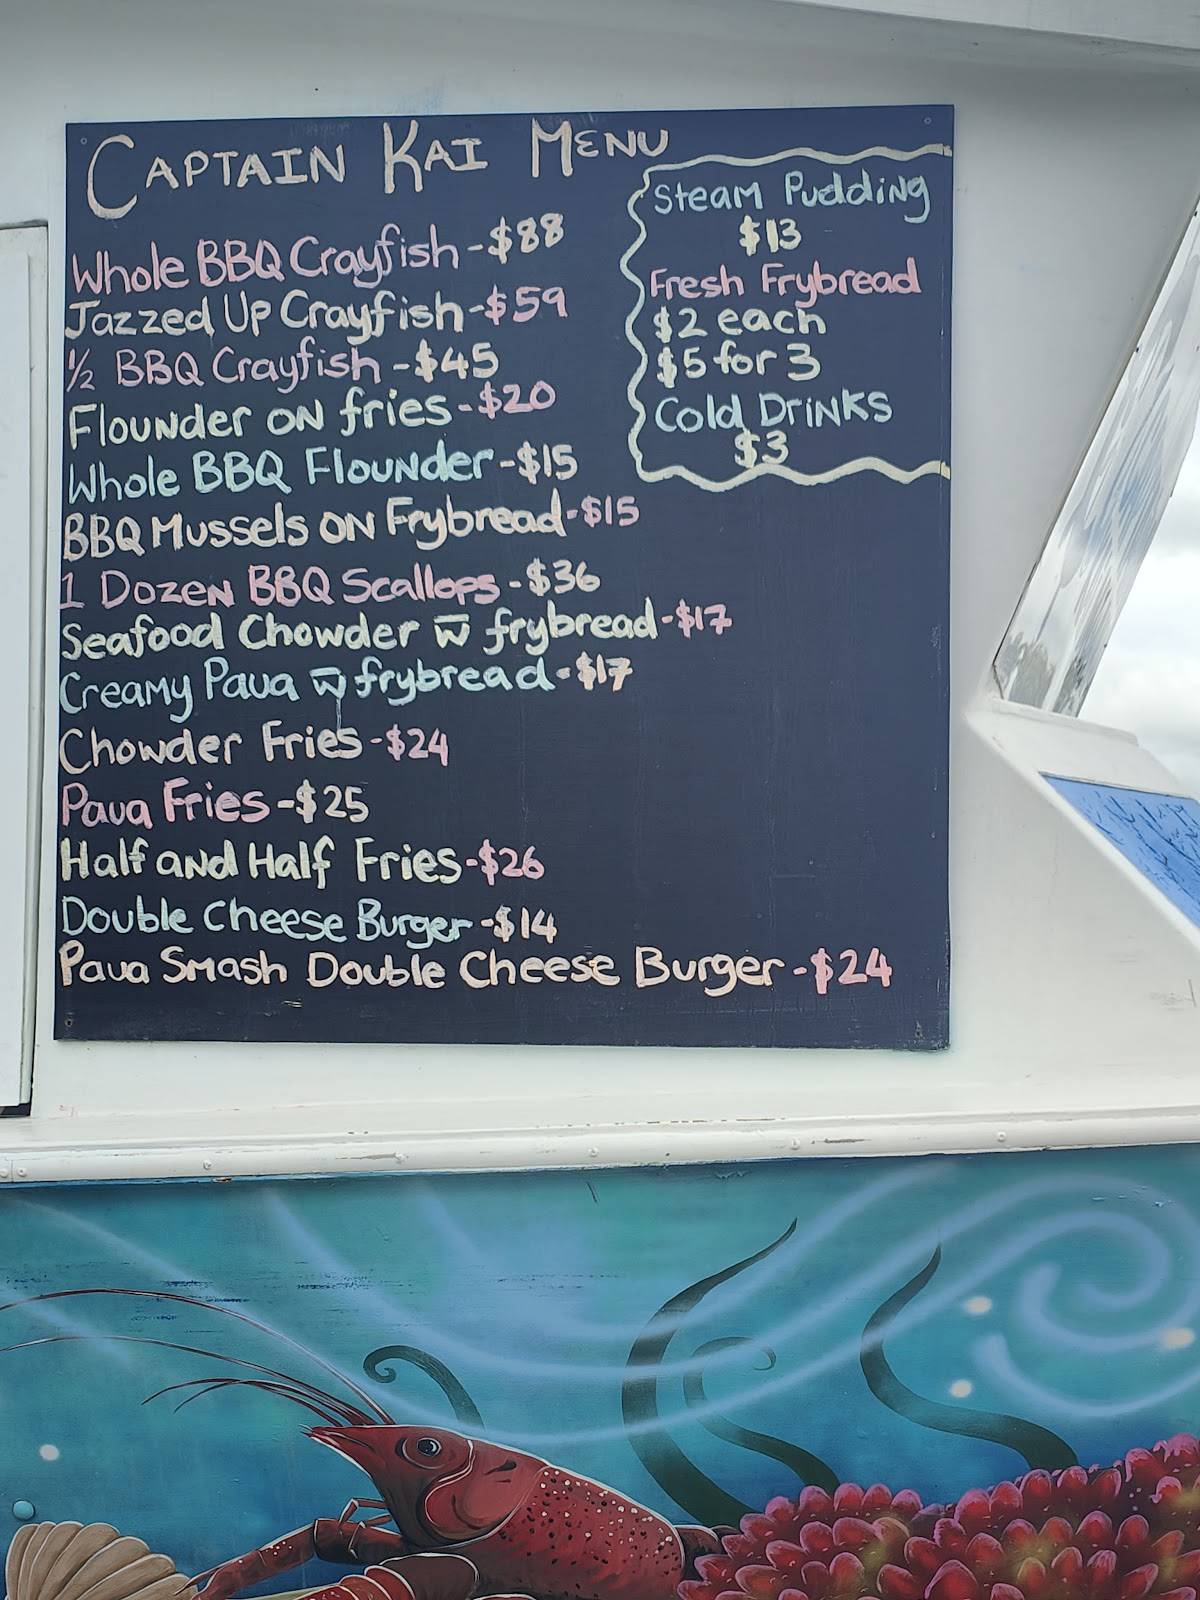 CAPTAIN KAI MENU
Whole BBQ Crayfish - $88
Jazzed Up Crayfish - $59
1/2 BBQ Crayfish - $45
Flounder on fries - $20
Whole BBQ Flounder - $15
BBQ Mussels on Frybread - $15
1 Dozen BBQ Scallops - $36
Seafood Chowder w̅ frybread - $17
Creamy Paua w̅ frybread - $17
Chowder Fries - $24
Paua Fries - $25
Half and Half Fries - $26
Double Cheese Burger - $14
Paua Smash Double Cheese Burger - $24
Steam Pudding
$13
Fresh Frybread
$2 each
$5 for 3
Cold Drinks
$3